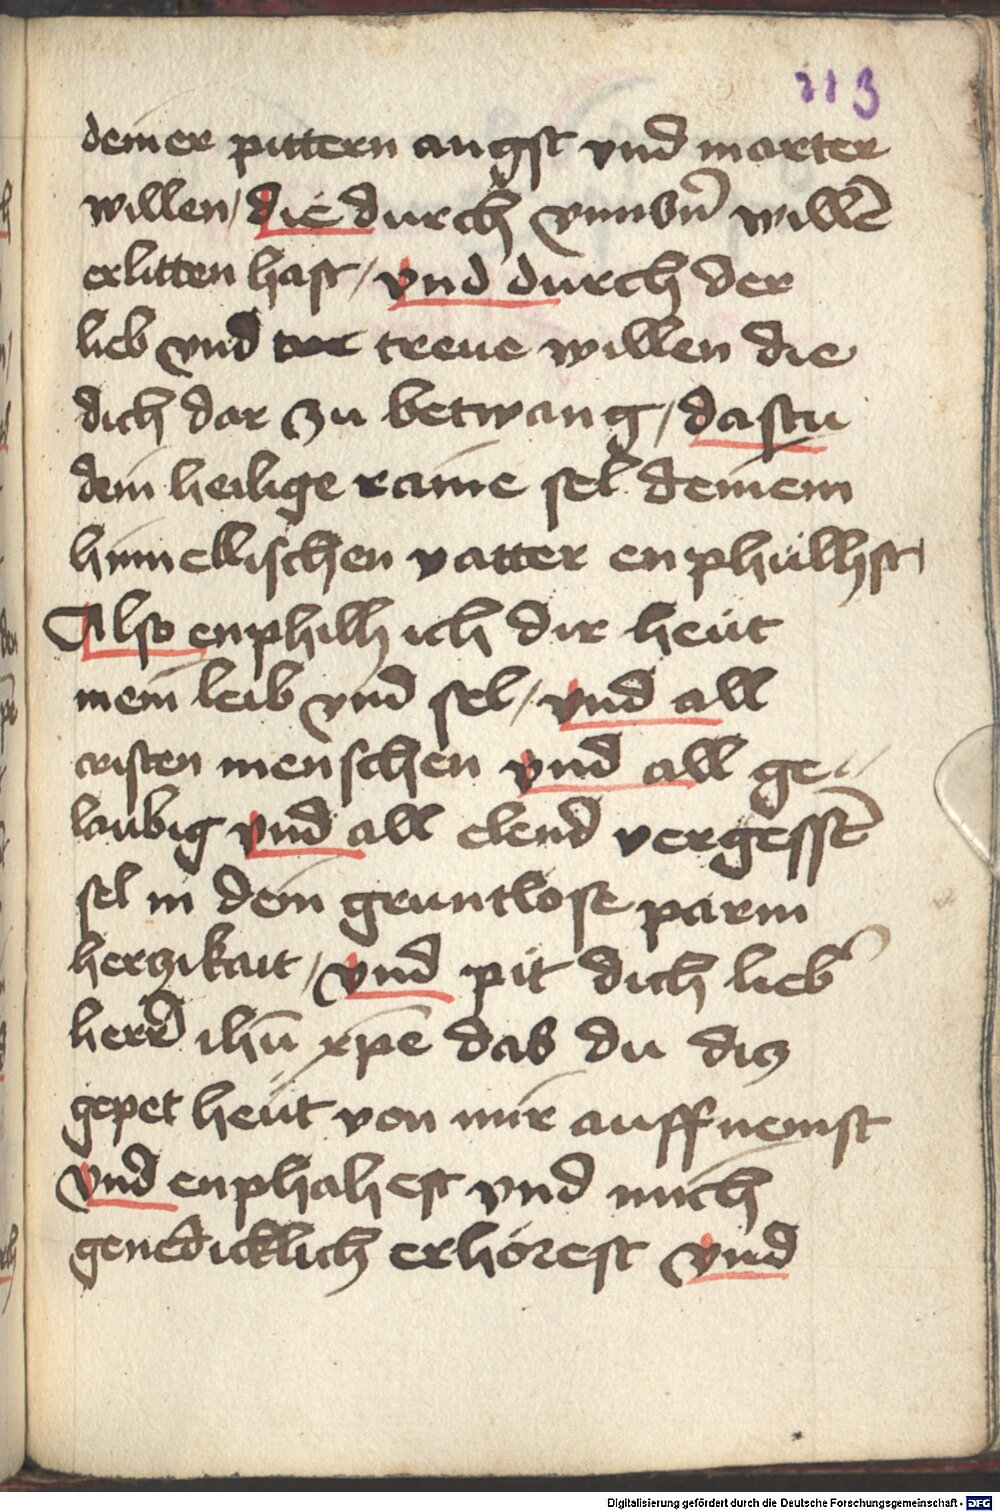 213
deiner pittern angst vnd marter
willen / die durch vnnsñ willē
erlitten hast / vnd durch der
lieb vnd treue willen die
dich dar zu betwang / dastu
dein heilige raine sel deinem
himellischen vatter enphüllhst /
Also enphilh ich dir heüt
mein leib vnd sel / vnd all
cristen menschen vnd all ge //
laubig vnd all elend vergessē
sel in dein gruntlose parm
herczikait / vnd pit dich lieb
herr ihū xp̄e das du dis
gepet heüt von mir auffnemst
vnd enphahest vnd mich
genedicklich erhörest vnd
Digitalisierung gefördert durch die Deutsche Forschungsgemeinschaft - DFG